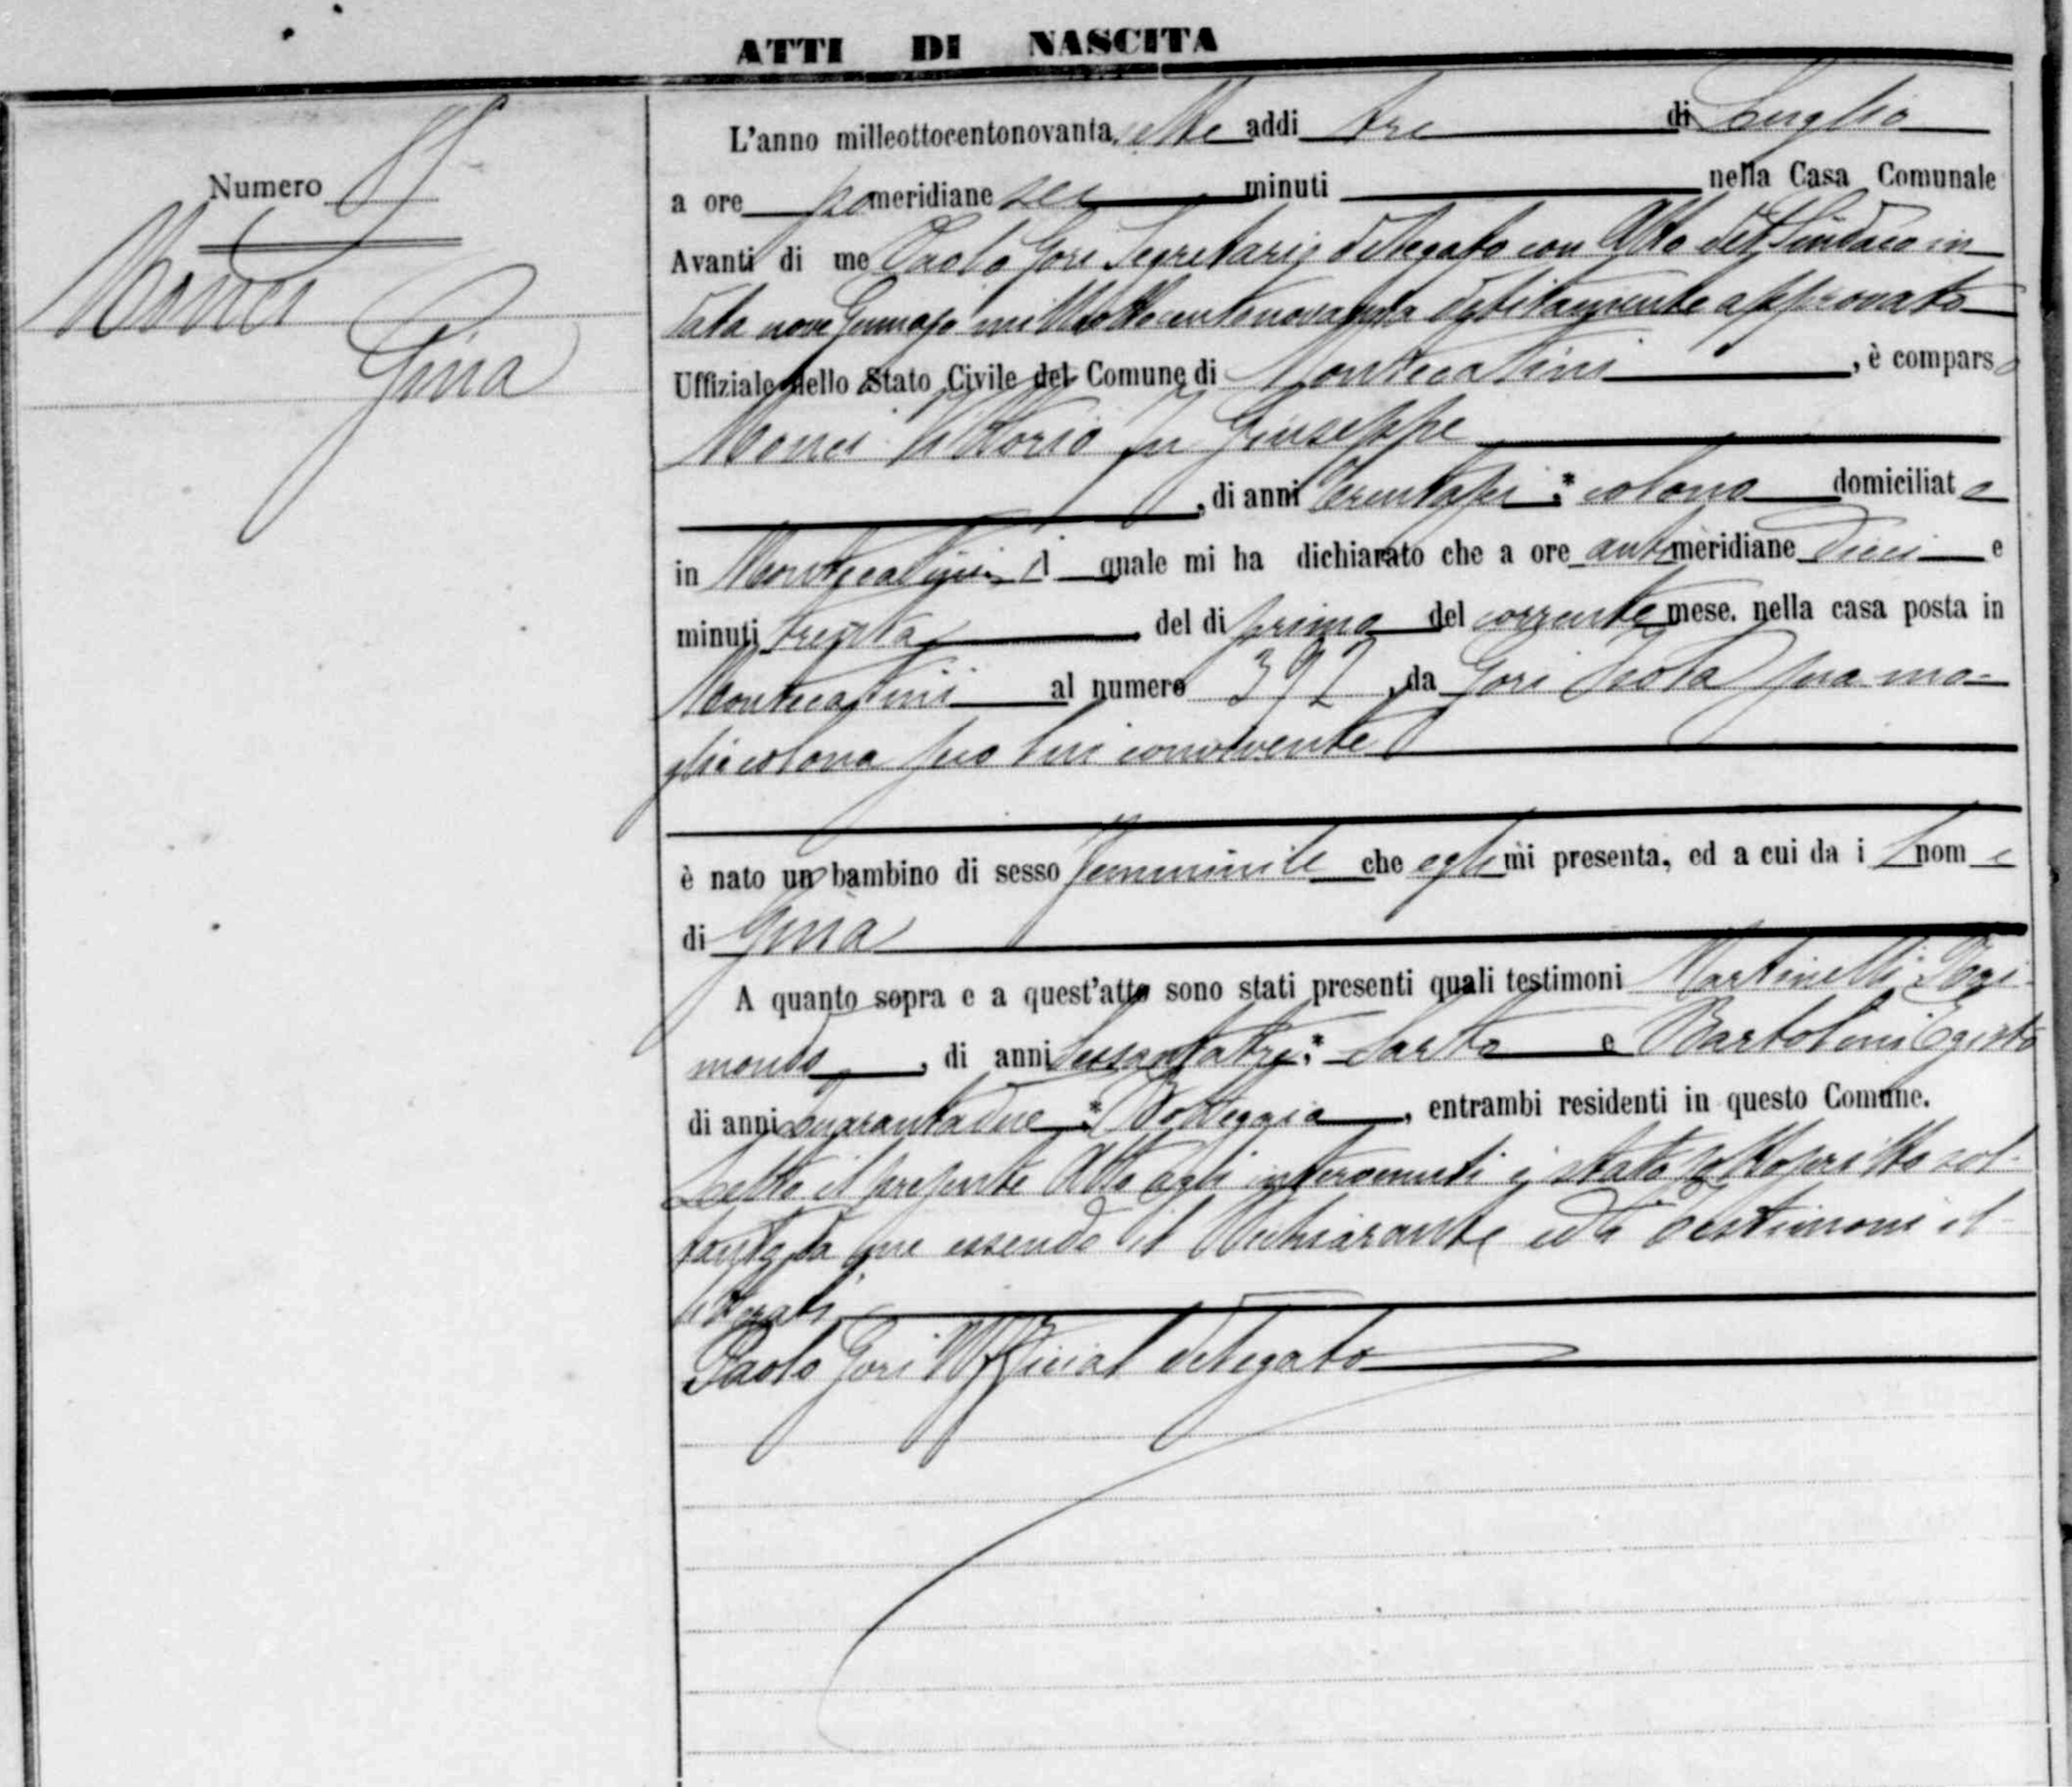 ATTI DI NASCITA
Numero
Monci
Gina
L'anno milleottocentonovantasette addi tre di Luglio
a ore pomeridiane sei minuti nella Casa Comunale
Avanti di me Paolo Gori Segretario delegato con Atto del Sindaco in
data nove Gennajo milleottocentonovanta debitamente approvato
Uffiziale dello Stato Civile del Comune di Montecatini, è comparso
Monci Vittorio fu Giuseppe
, di anni trentasei: * colono domiciliato
in Montecatini il quale mi ha dichiarato che a ore antimeridiane dieci e
minuti trenta del di primo del corrente mese. nella casa posta in
Montecatini al numero 392, da Gori Isola sua mo-
glie colona seco lui convivente
è nato un bambino di sesso femminile che egli mi presenta, ed a cui da il nome
di Gina
A quanto sopra e a quest'atto sono stati presenti quali testimoni Martinelli
mondo, di anni sessantatre: * Sarto e Bartolini Egisto
di anni quarantadue: * Bottegaio, entrambi residenti in questo Comune.
Letto il presente Atto agli intervenuti è stato sottoscritto sol-
tanto da me essendo il dichiarante ed i testimoni il-
litterati
Paolo Gori Official delegato